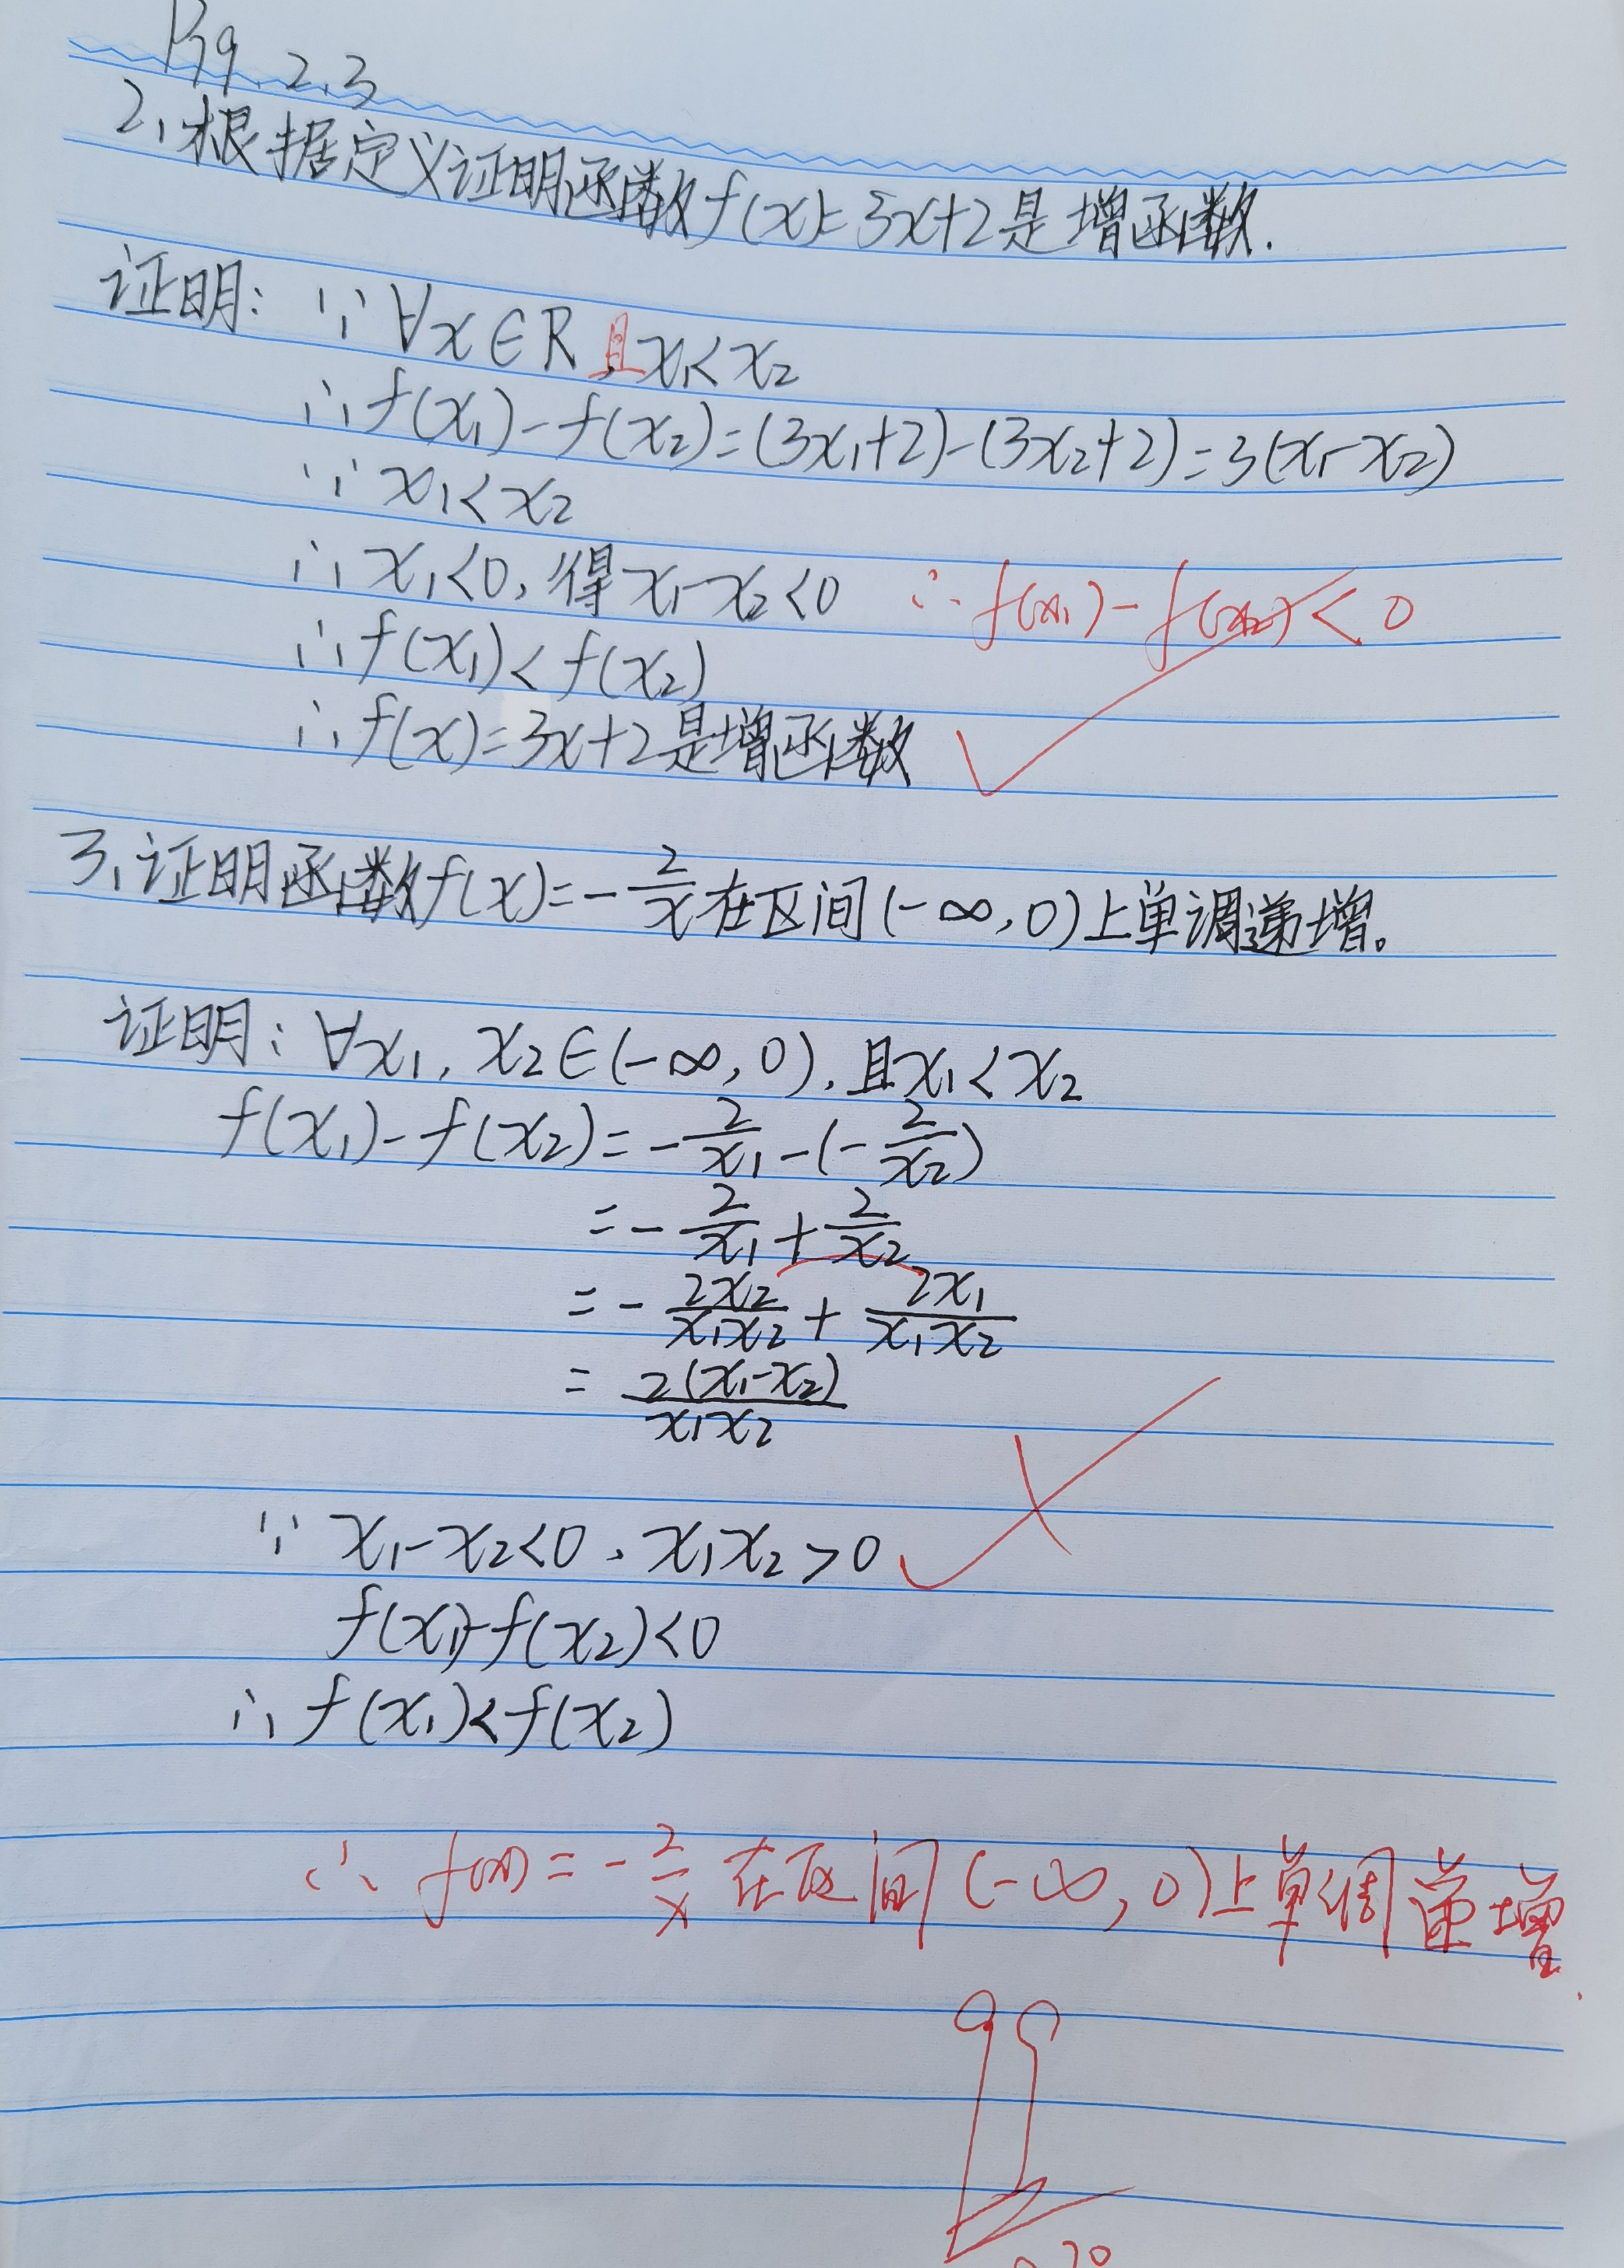 P79.2.3
2、根据定义证明函数f(x)=3x+2是增函数.
证明: ∵∀x∈R 且 x₁<x₂
∴f(x₁)-f(x₂)=(3x₁+2)-(3x₂+2)=3(x₁-x₂)
∵x₁<x₂
∴x₁<0,得x₁-x₂<0 ∴f(x₁)-f(x₂)<0
∴f(x₁)<f(x₂)
∴f(x)=3x+2是增函数
3、证明函数f(x)=-2/x在区间(-∞,0)上单调递增。
证明:∀x₁,x₂∈(-∞,0),且x₁<x₂
f(x₁)-f(x₂)=-2/x₁-(-2/x₂)
=-2/x₁+2/x₂
=-2x₂/x₁x₂+2x₁/x₁x₂
=2(x₁-x₂)/x₁x₂
∵x₁-x₂<0,x₁x₂>0
f(x₁)-f(x₂)<0
∴f(x₁)<f(x₂)
∴f(x)=-2/x在区间(-∞,0)上单调递增.